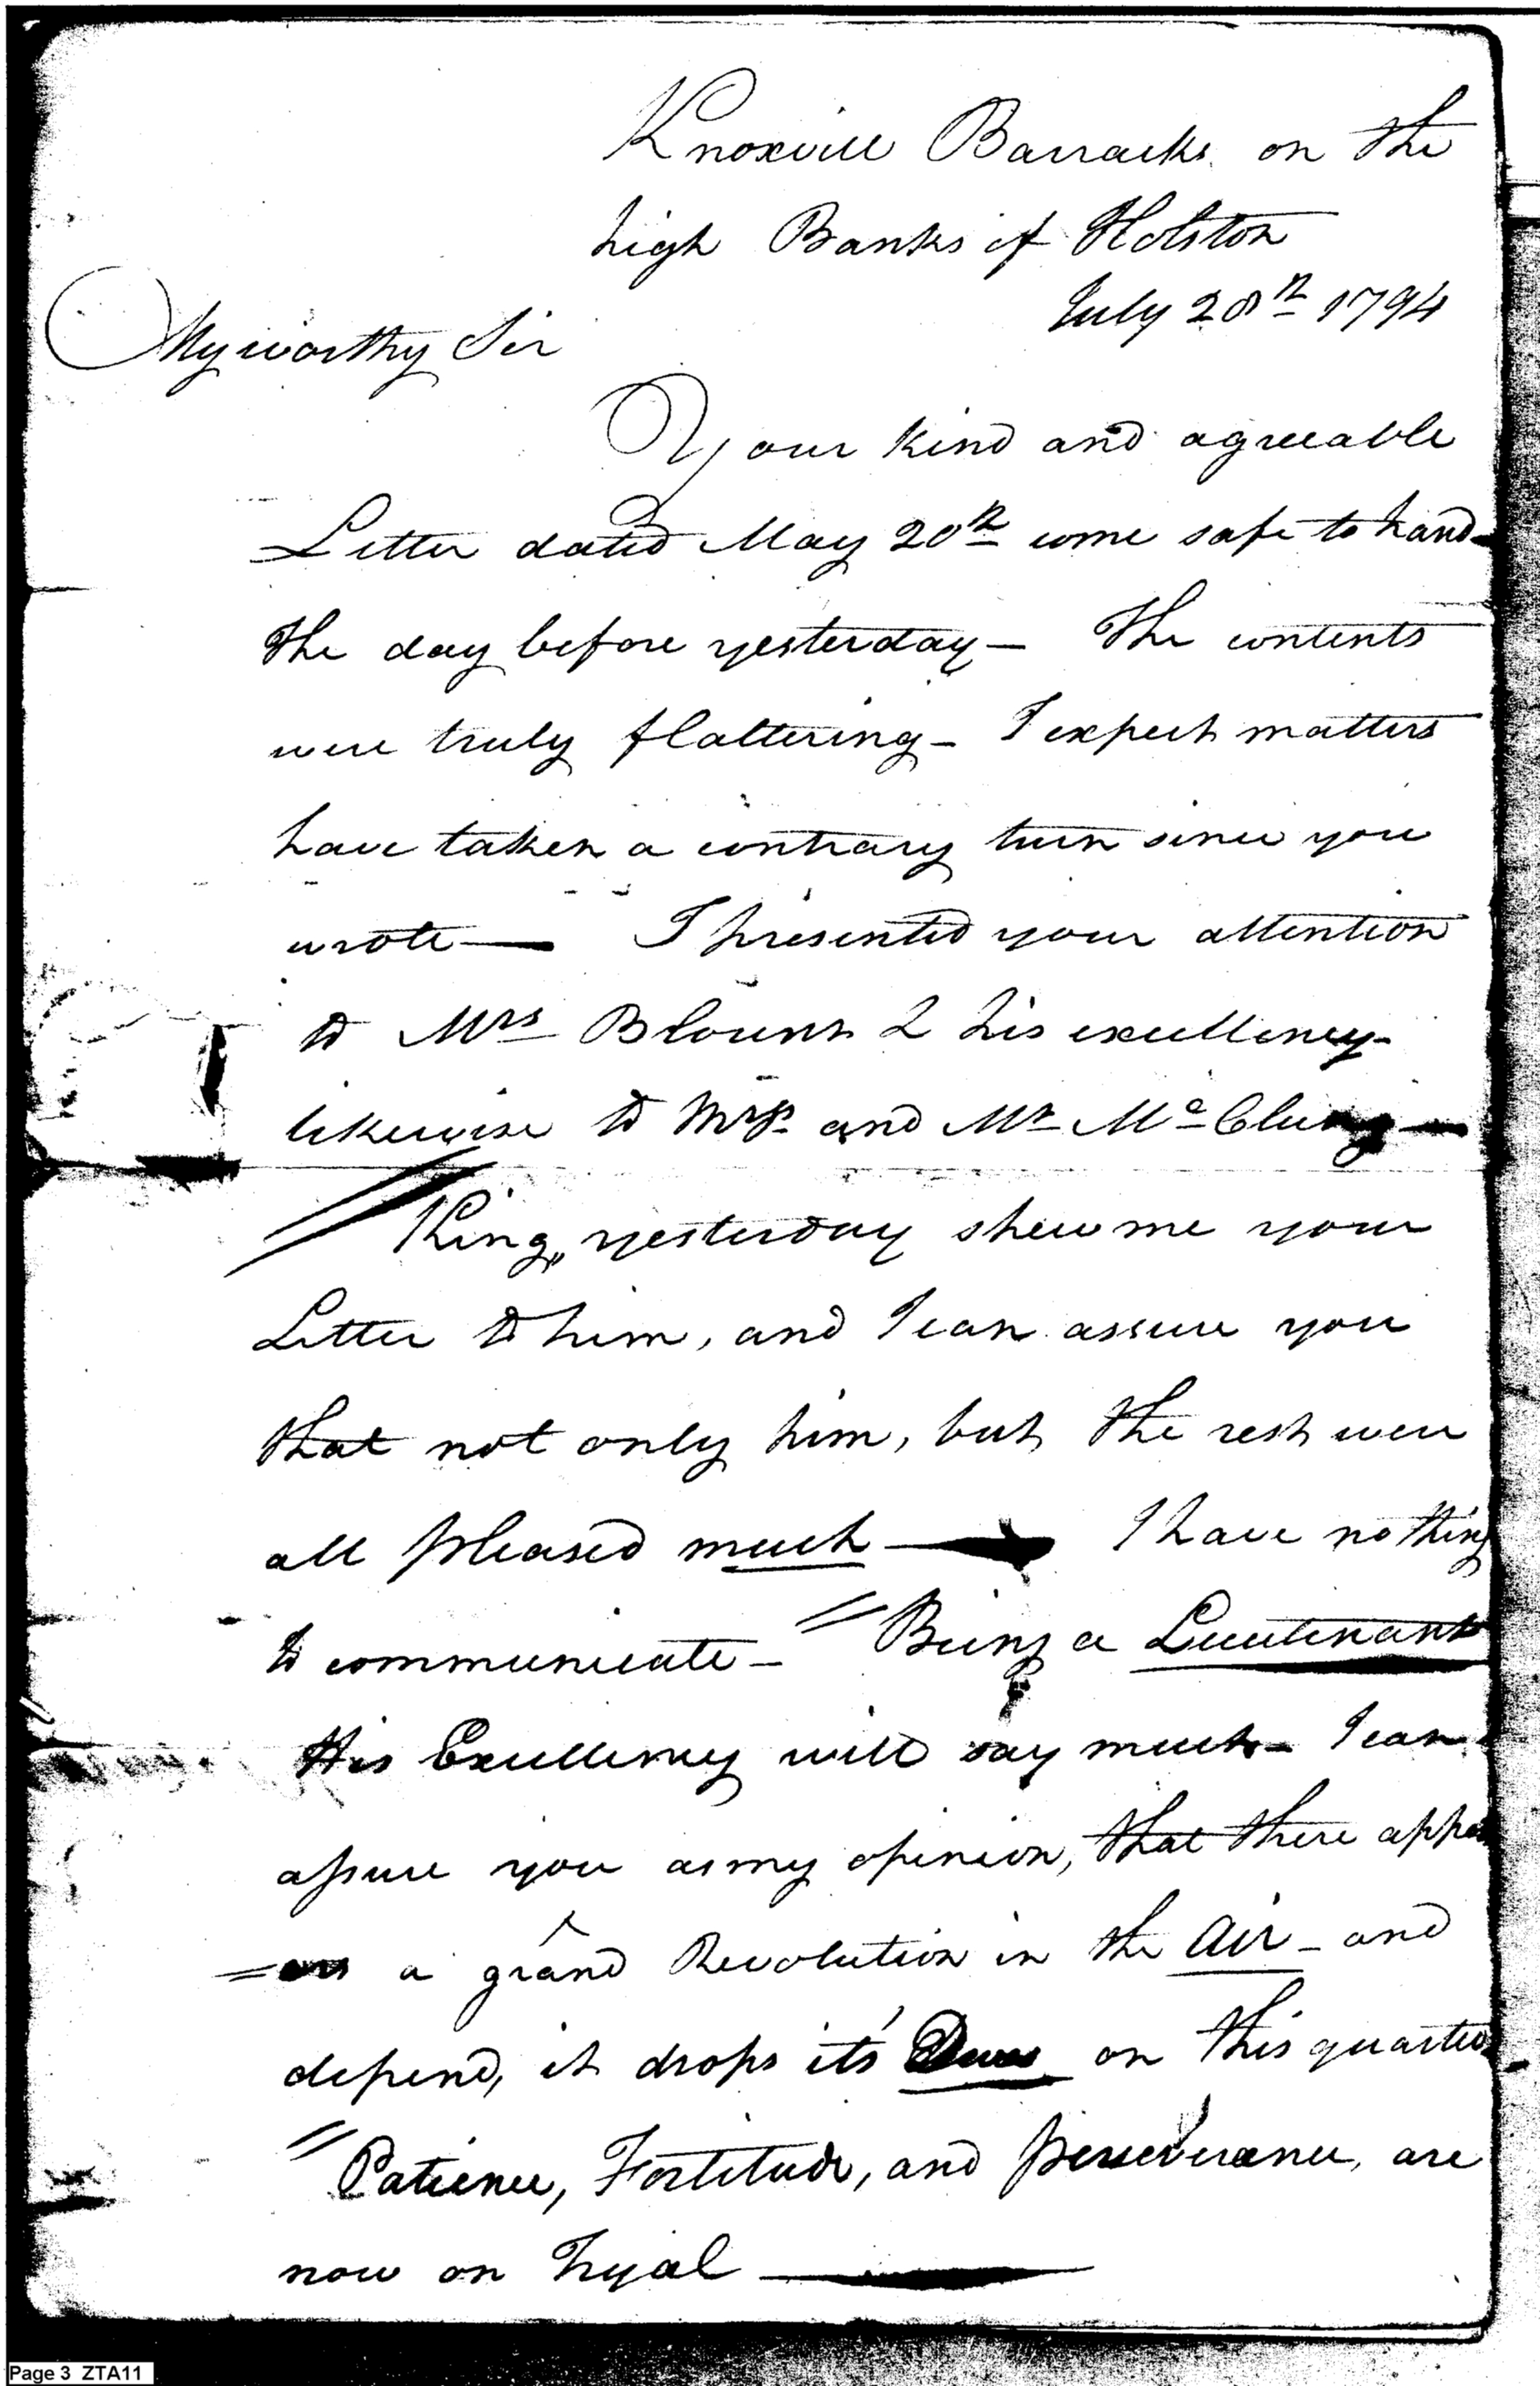 Knoxvill Barracks on the
high Banks of Holston
July 28th 1794
My worthy Sir
Your kind and agreeable
Letter dated May 20th come safe to hand
the day before yesterday — The contents
were truly flattering — I expect matters
have taken a contrary turn since you
wrote — I presented your attention
to Mrs Blount & his excellency
likewise to Mrs and Mr McClung —
King, yesterday shew me your
Letter to him, and I can assure you
that not only him, but the rest were
all pleased much — I have nothing
to communicate — Being a Lieutenant
His Excellency will say much — I can
assure you as my opinion, that there appe
=ars a grand Revolution in the Air — and
depend, it drops its' on this quarter
Patience, Fortitude, and perseverance, are
now on Tryal —
Page 3 ZTA11